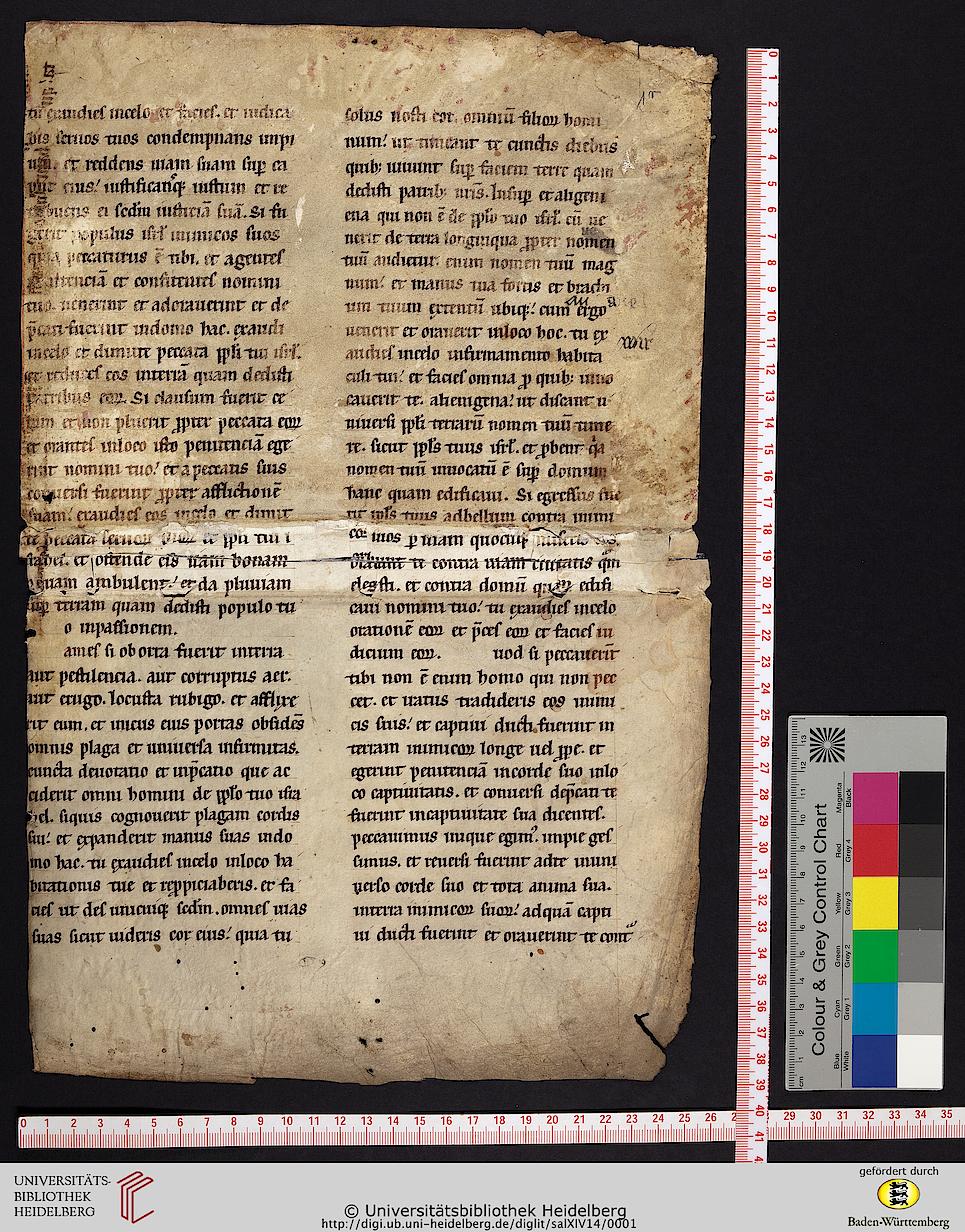 tu exaudies incelo et facies. et iudica
bis seruos tuos condempnans impi
um et reddens uiam suam suꝑ ca
put eius: iustificansq; iustum et re
tribuens ei scdm iusticiā suā. Si fu
gerit populus isrl inimicos suos
quia peccaturus ē tibi. et agentes
penitenciā et confitentes nomini
tuo. uenerint et adorauerint et de
p̄cati fuerint indomo hac. exaudi
incelo et dimitte peccata ppl̄i tui isrl.
et reduces eos interrā quam dedisti
patribus eoꝝ. Si clausum fuerit ce
lum et non pluerit ꝓpter peccata eoꝝ
et orantes inloco isto penitenciā ege
rint nomini tuo: et a peccatis suis
conuersi fuerint ꝓpter afflictionē
suam: exaudies eos incelo et dimit
te peccata seruoꝝ tuoꝝ et ppl̄i tui i
srahel. et ostende eis uiam bonam
ꝑquam ambulent: et da pluuiam
suꝑ terram quam dedisti populo tu
o inpassionem.
ames si oborta fuerit interra
aut pestilencia. aut corruptus aer.
aut erugo. locusta rubigo. et afflixe
rit eum. et inicus eius portas obsidēs
omnis plaga et uniuersa infirmitas.
cuncta deuotatio et inp̄catio que ac
ciderit omni homini de ppl̄o tuo isra
hel. siquis cognouerit plagam cordis
sui: et expanderit manus suas indo
mo hac. tu exaudies incelo inloco ha
bitationis tue et repp̄iciaberis. et fa
cies ut des unicuiq; scdm. omnes uias
suas sicut uideris cor eius: quia tu
1r
solus nosti cor. omniū filioꝝ homi
num: ut timeant te cunctis diebus
quib; uiuunt suꝑ faciem terre quam
dedisti patrib; nr̄is. Insuꝑ et aligeni
ena qui non ē de ppl̄o tuo isrl. cū ue
nerit de terra longinqua ꝓpter nomen
tuū audietur enim nomen tuū mag
num: et manus tua fortis et brachi
um tuum extentū ubiq;: cum ergo
uenerit et orauerit inloco hoc. tu ex
audies incelo infirmamento habita
culi tui: et facies omnia ꝑ quib; inuo
cauerit te. alienigena: ut discant u
niuersi ppl̄i terrarū nomen tuū time
re. sicut ppl̄s tuus isrl. et ꝓbent q̄a
nomen tuū inuocatū ē suꝑ domum
hanc quam edificaui. Si egressus fue
rit ppl̄s tuus adbellum contra inimi
cos suos ꝑ uiam quocūq; miseris eos
orabunt te contra uiam ciuitatis quā
elegisti. et contra domū quam edifi
caui nomini tuo: tu exaudies incelo
orationē eoꝝ et p̄ces eoꝝ et facies iu
dicium eoꝝ. uod si peccauerit
tibi non ē enim homo qui non pec
cet. et iratus tradideris eos inimi
cis suis: et captiui ducti fuerint in
terram inimicoꝝ longe uel ꝓpe. et
egerint penitenciā incorde suo inlo
co captiuitatis. et conuersi dep̄cati te
fuerint incaptiuitate sua dicentes.
peccauimus inique egim:. impie ges
simus. et reuersi fuerint adte uniu
uerso corde suo et tota anima sua.
interra inimicoꝝ suoꝝ: adquā capti
ui ducti fuerint et orauerint te cont
Colour & Grey Control Chart
Blue Cyan Green Yellow Red Magenta
White Grey 1 Grey 2 Grey 3 Grey 4 Black
UNIVERSITÄTS-
BIBLIOTHEK
HEIDELBERG
© Universitätsbibliothek Heidelberg
http://digi.ub.uni-heidelberg.de/diglit/salXIV14/0001
gefördert durch
Baden-Württemberg